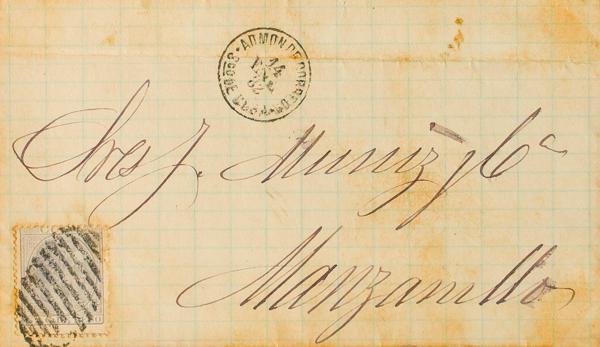 ADMON DE CORREOS
14
ENE
82
Sres J. Muniz y Ca
Manzanillo